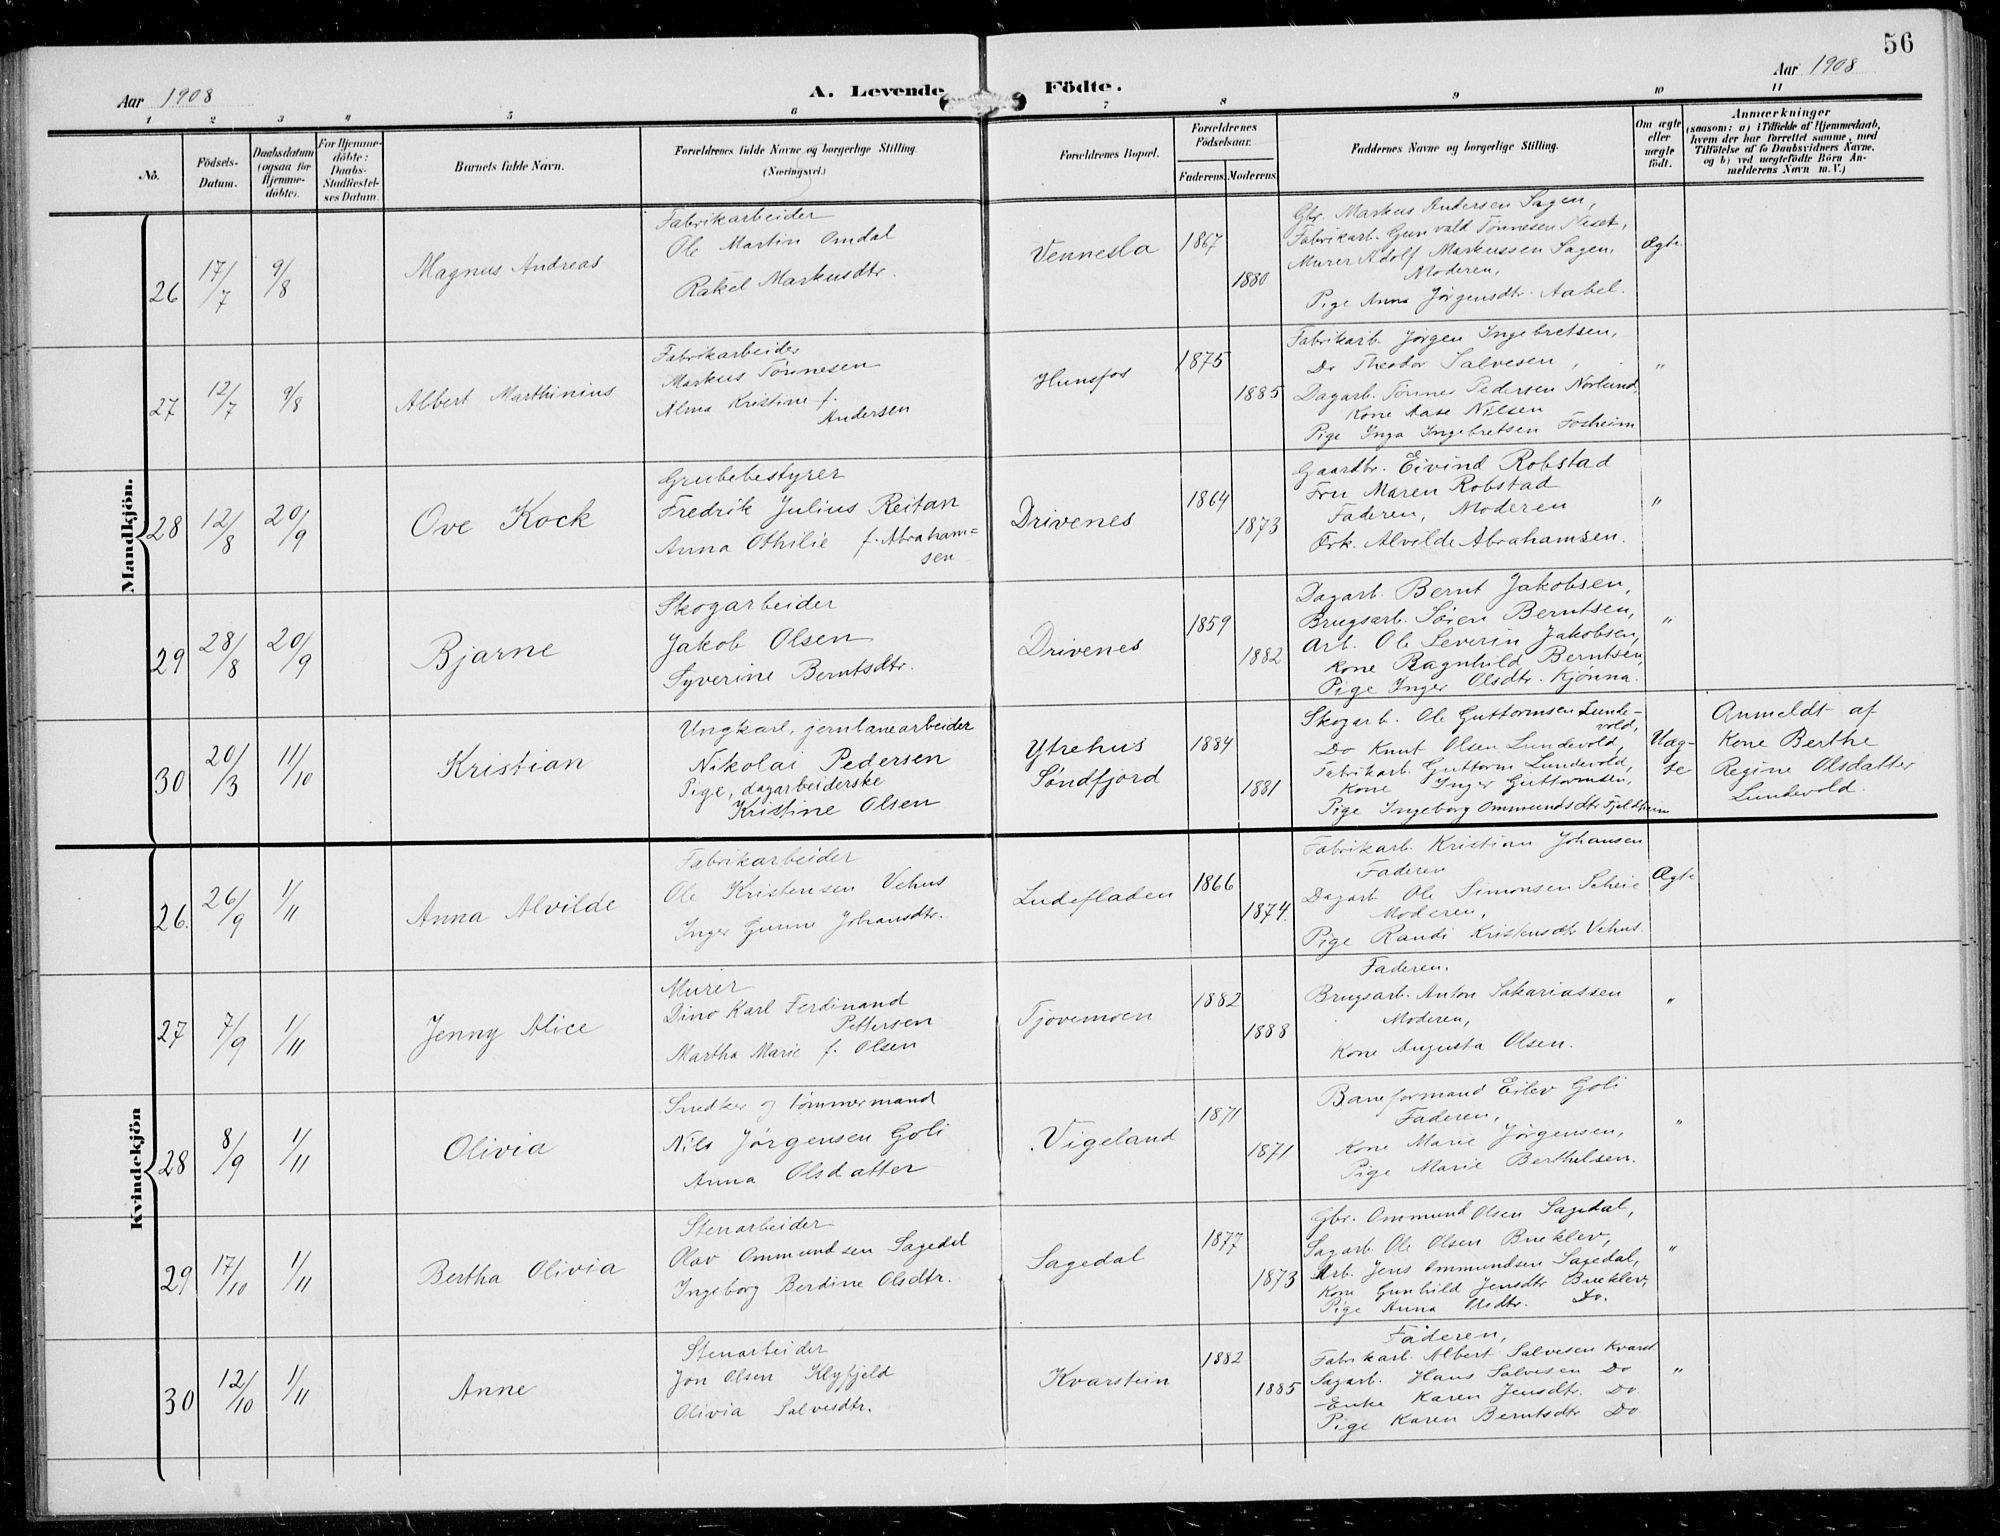 56
Aar 1908
A. Levende Födte.
Aar 1908
1 2 3 4 5 6 7 8 9 10 11
No.
Födsels-Datum.
Daabsdatum (ogsaa for Hjemmedöbte).
For Hjemmedöbte: Daabs-Stadfæstelses Datum.
Barnets fulde Navn.
Forældrenes fulde Navne og borgerlige Stilling.
(Næringsvei.)
Forældrenes Bopæl.
Forældrenes Födselsaar.
Faderens. Moderens.
Faddernes Navne og borgerlige Stilling.
Om ægte eller uægte födt.
Anmærkninger
(saasom: a) i Tilfælde af Hjemmedaab,
hvem der har forrettet samme, med
Tilföielse af to Daabsvidners Navne,
og b) ved uægtefödte Börn Anmelderens Navn m. V.)
Mandkjön.
26
17/7
9/8
Magnus Andreas
Fabrikarbeider
Ole Martin Omdal
Rakel Markusdtr.
Vennesla
1867
1880
Gbr. Markus Andersen Sagen,
Fabrikarb. Gunvald Tønnesen Neset,
Murer Adolf Markussen Sagen,
Moderen,
Pige Anna Jørgensdtr. Aabel.
Ægte
27
12/7
9/8
Albert Marthinius
Fabrikarbeider
Markus Tønnesen
Alma Kristine f.
Andersen
Hunsfos
1875
1885
Fabrikarb. Jørgen Ingebretsen,
Do Theodor Salvesen,
Dagarb. Tønnes Pedersen Norlund,
Kone Aase Nilsen
Pige Inga Ingebretsen Fosheim
"
28
12/8
20/9
Ove Kock
Grubebestyrer
Fredrik Julius Reitan
Anna Othilie f. Abraham=
sen
Drivenes
1864
1873
Gaardbr. Eivind Robstad
Fru Maren Robstad
Faderen, Moderen
Frk. Alvilde Abrahamsen.
"
29
28/8
20/9
Bjarne
Skogarbeider
Jakob Olsen
Syverine Berntsdtr.
Drivenes
1859
1882
Dagarb. Bernt Jakobsen,
Brugsarb. Søren Berntsen,
Arb. Ole Severin Jakobsen,
Kone Ragnhild Berntsen,
Pige Inger Olsdtr. Kjønna.
"
30
20/3
11/10
Kristian
Ungkarl, jernbanearbeider
Nikolai Pedersen
Pige, dagarbeiderske
Kristine Olsen
Ytrehus
Søndfjord
1884
1881
Skogarb. Ole Guttormsen Lunde-
vold,
Do Knut Olsen Lundevold,
Fabrikarb. Guttorm Lundevold,
Kone Inger Guttormsen,
Pige Ingeborg Ommundsdtr Fjeldheim
Uæg-
te
Anmeldt af
Kone Berthe
Regine Olsdatter
Lundevold.
Kvindekjön
26.
26/9
1/11
Anna Alvilde
Fabrikarbeider
Ole Kristensen Vehus
Inger Gunne Johansdtr.
Ludefladen
1866
1874.
Fabrikarb. Kristian Johansen
Faderen
Dagarb. Ole Simonsen Scheie
Moderen,
Pige Randi Kristensdtr Vehus.
Ægte
27
7/9
1/11
Jenny Alice
Murer
Dino Karl Ferdinand
Pettersen
Martha Marie f. Olsen
Tjovemoen
1882
1888
Faderen.
Brugsarb. Anton Sakariassen
Moderen,
Kone Augusta Olsen.
"
28
8/9
1/11
Olivia
Snedker og tømmermand
Nils Jørgensen Goli
Anna Olsdatter
Vigeland
1871
1871
Baneformand Eilev Goli
Faderen,
Kone Marie Jørgensen,
Pige Marie Berthelsen.
"
29
17/10
1/11
Bertha Olivia
Stenarbeider
Olav Ommundsen Sagedal
Ingeborg Berdine Olsdtr.
Sagedal
1877
1873
Gbr. Ommund Olsen Sagedal,
Sagarb. Ole Olsen Bueklev,
Arb. Jens Ommundsen Sagedal,
Kone Gunhild Jensdtr Bueklev,
Pige Anna Olsdtr. Do.
"
30
12/10
1/11
Anne
Stenarbeider
Jon Olsen Klepfjeld
Olivia Salvesdtr.
Kvarstein
1882
1885
Faderen,
Fabrikarb. Albert Salvesen Kvarst
Sagarb. Hans Salvesen Do
Enke Karen Jensdtr. Do.
Pige Karen Berntsdtr Do
"